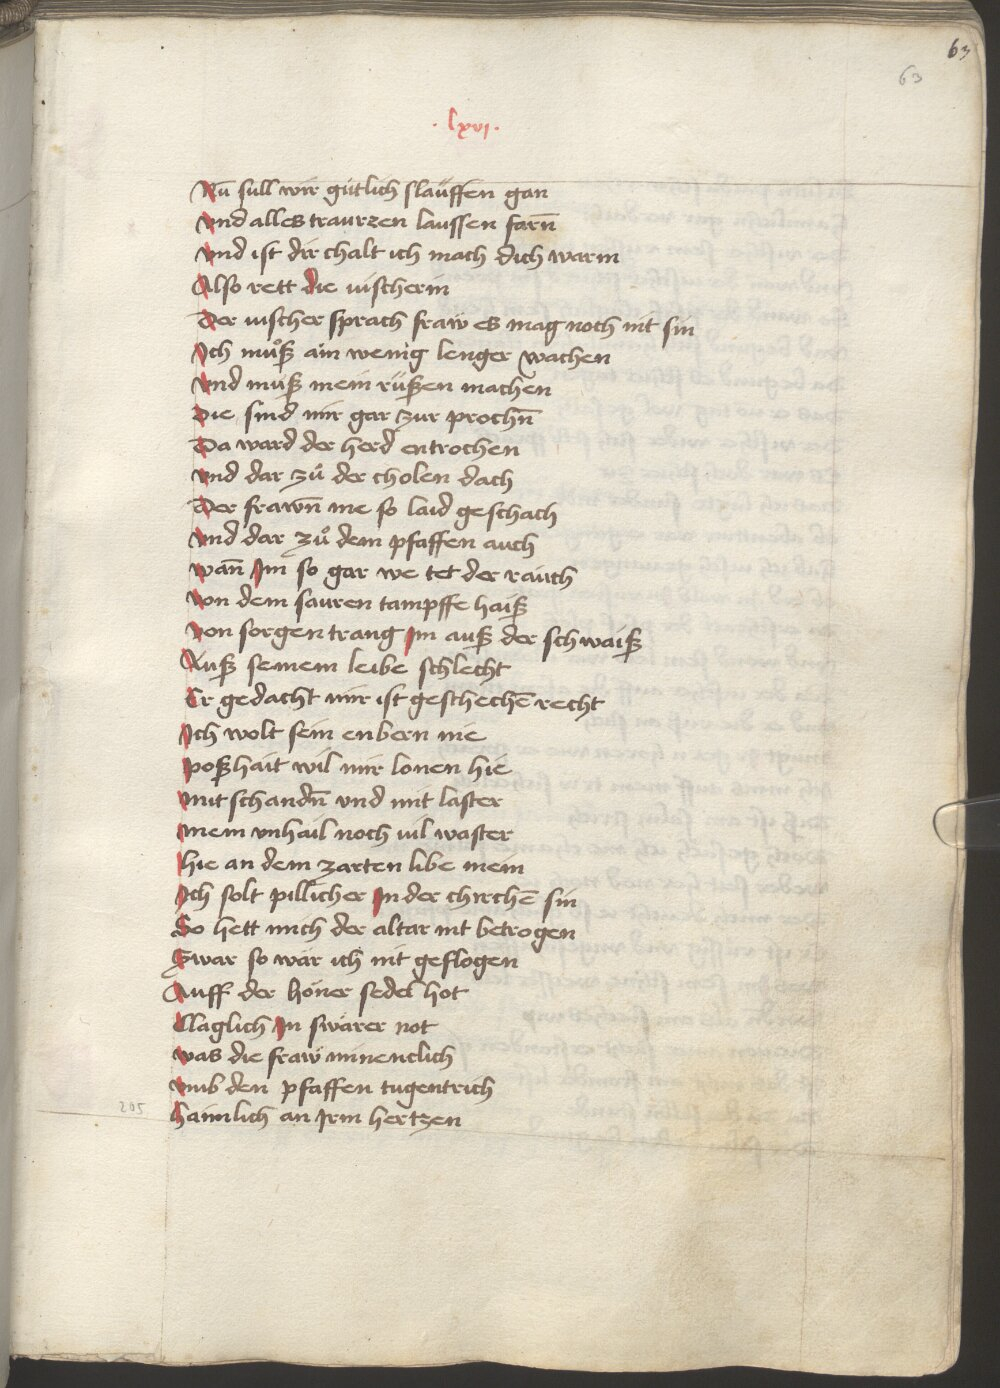 63
63
· lxvi ·
Nū süll wir gütlich slauffen gan
vnd alles traurzen laussen farñ
vnd ist dir chalt ich mach dich warm
Also rett die vischerin
Der vischer sprach fraw es mag noch nit sin
Ich můsß ain wenig lenger wachen
vnd müsß mein rüsßen machen
Die sind mir gar zur prochñ
Da ward der herd entrochen
vnd dar zů der cholen dach
Der frawñ nie so laid geschach
vnd dar zů dem pfaffen auch
wañ Im so gar we tet der rauch
von dem sauren tampffe haiß
von sorgen trang Im auß der schwaiß
Auß seinem leibe schlecht
Er gedacht mir ist geschechē recht
Ich wolt sein enbern nie
poßhait wil mir lonen hie
mit schandñ vnd mit laster
mein vnhail noch vil waster
hie an dem zarten libe mein
Ich solt pillicher In der chirchē sin
So hett mich der altar nit betrogen
Zwar so wär ich nit geflogen
Auff der höner sedel hot
Claglich In swärer not
was die fraw minenclich
vmb den pfaffen tugentrich
205 haimlich an Irm hertzen